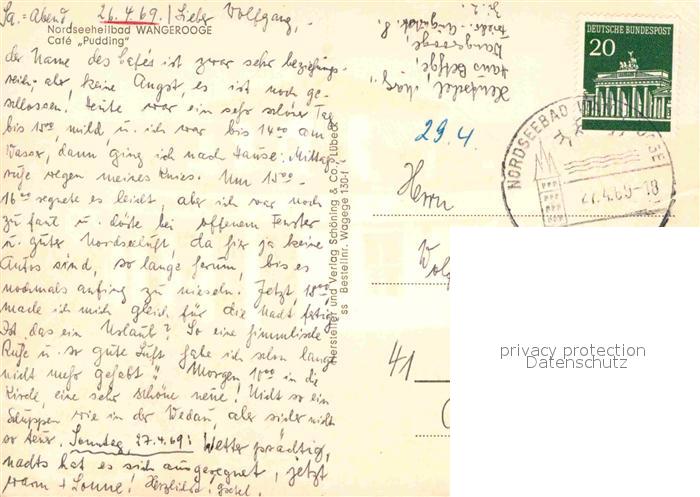 Sa.-Abend 26.4.69. / Lieber Wolfgang,
Nordseeheilbad WANGEROOGE
Café „Pudding"
der Name des Cafés ist zwar sehr beziehungs-
reich, aber keine Angst, es ist noch ge-
schlossen! Heute war ein sehr schöner Tag
bis 15⁰⁰, mild, u. ich war bis 14⁰⁰ am
Wasser, dann ging ich nach Hause: Mittags-
ruhe wegen meines Knies. Um 15⁰⁰-
16⁰⁰ regnete es leicht, aber ich war noch
zu faul u. döste bei offenem Fenster
u. guter Nordseeluft, da hier ja keine
Autos sind, so lange herum, bis es
nochmals anfing zu nieseln. Jetzt, 18⁰⁰
mache ich mich gleich für die Nacht fertig.
Ist das ein Urlaub? So eine himmlische
Ruhe u. so gute Luft habe ich schon lange
nicht mehr gehabt! Morgen 10⁰⁰ in die
Kirche, eine sehr schöne neue! Nicht so ein
Schuppen wie in der Wedau, aber sicher nicht
so teuer. Sonntag, 27.4.69: Wetter prächtig,
nachts hat es sich ausgeregnet, jetzt
warm + Sonne! Herzlichst
Hersteller und Verlag Schöning & Co., Lübeck
ss Bestellnr. Wagege 130-f
Hans
Wangerooge
DEUTSCHE BUNDESPOST
20
NORDSEEBAD
27.4.69-18
29.4.
Herrn
41
privacy protection
Datenschutz